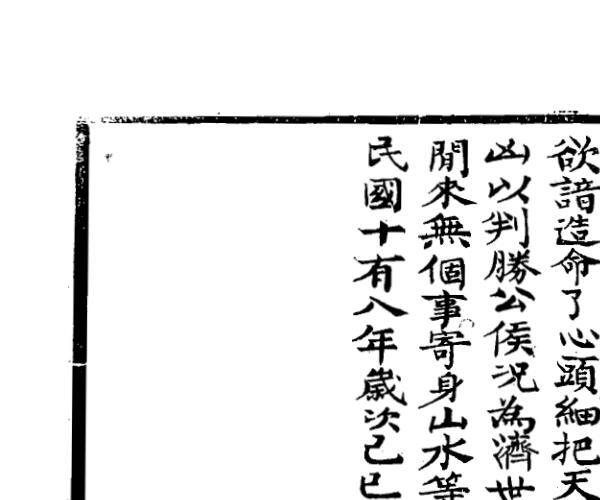 欲諳造命了心頭細把天
凶以判勝公侯況為濟世
閒來無個事寄身山水等
民國十有八年歲次己巳